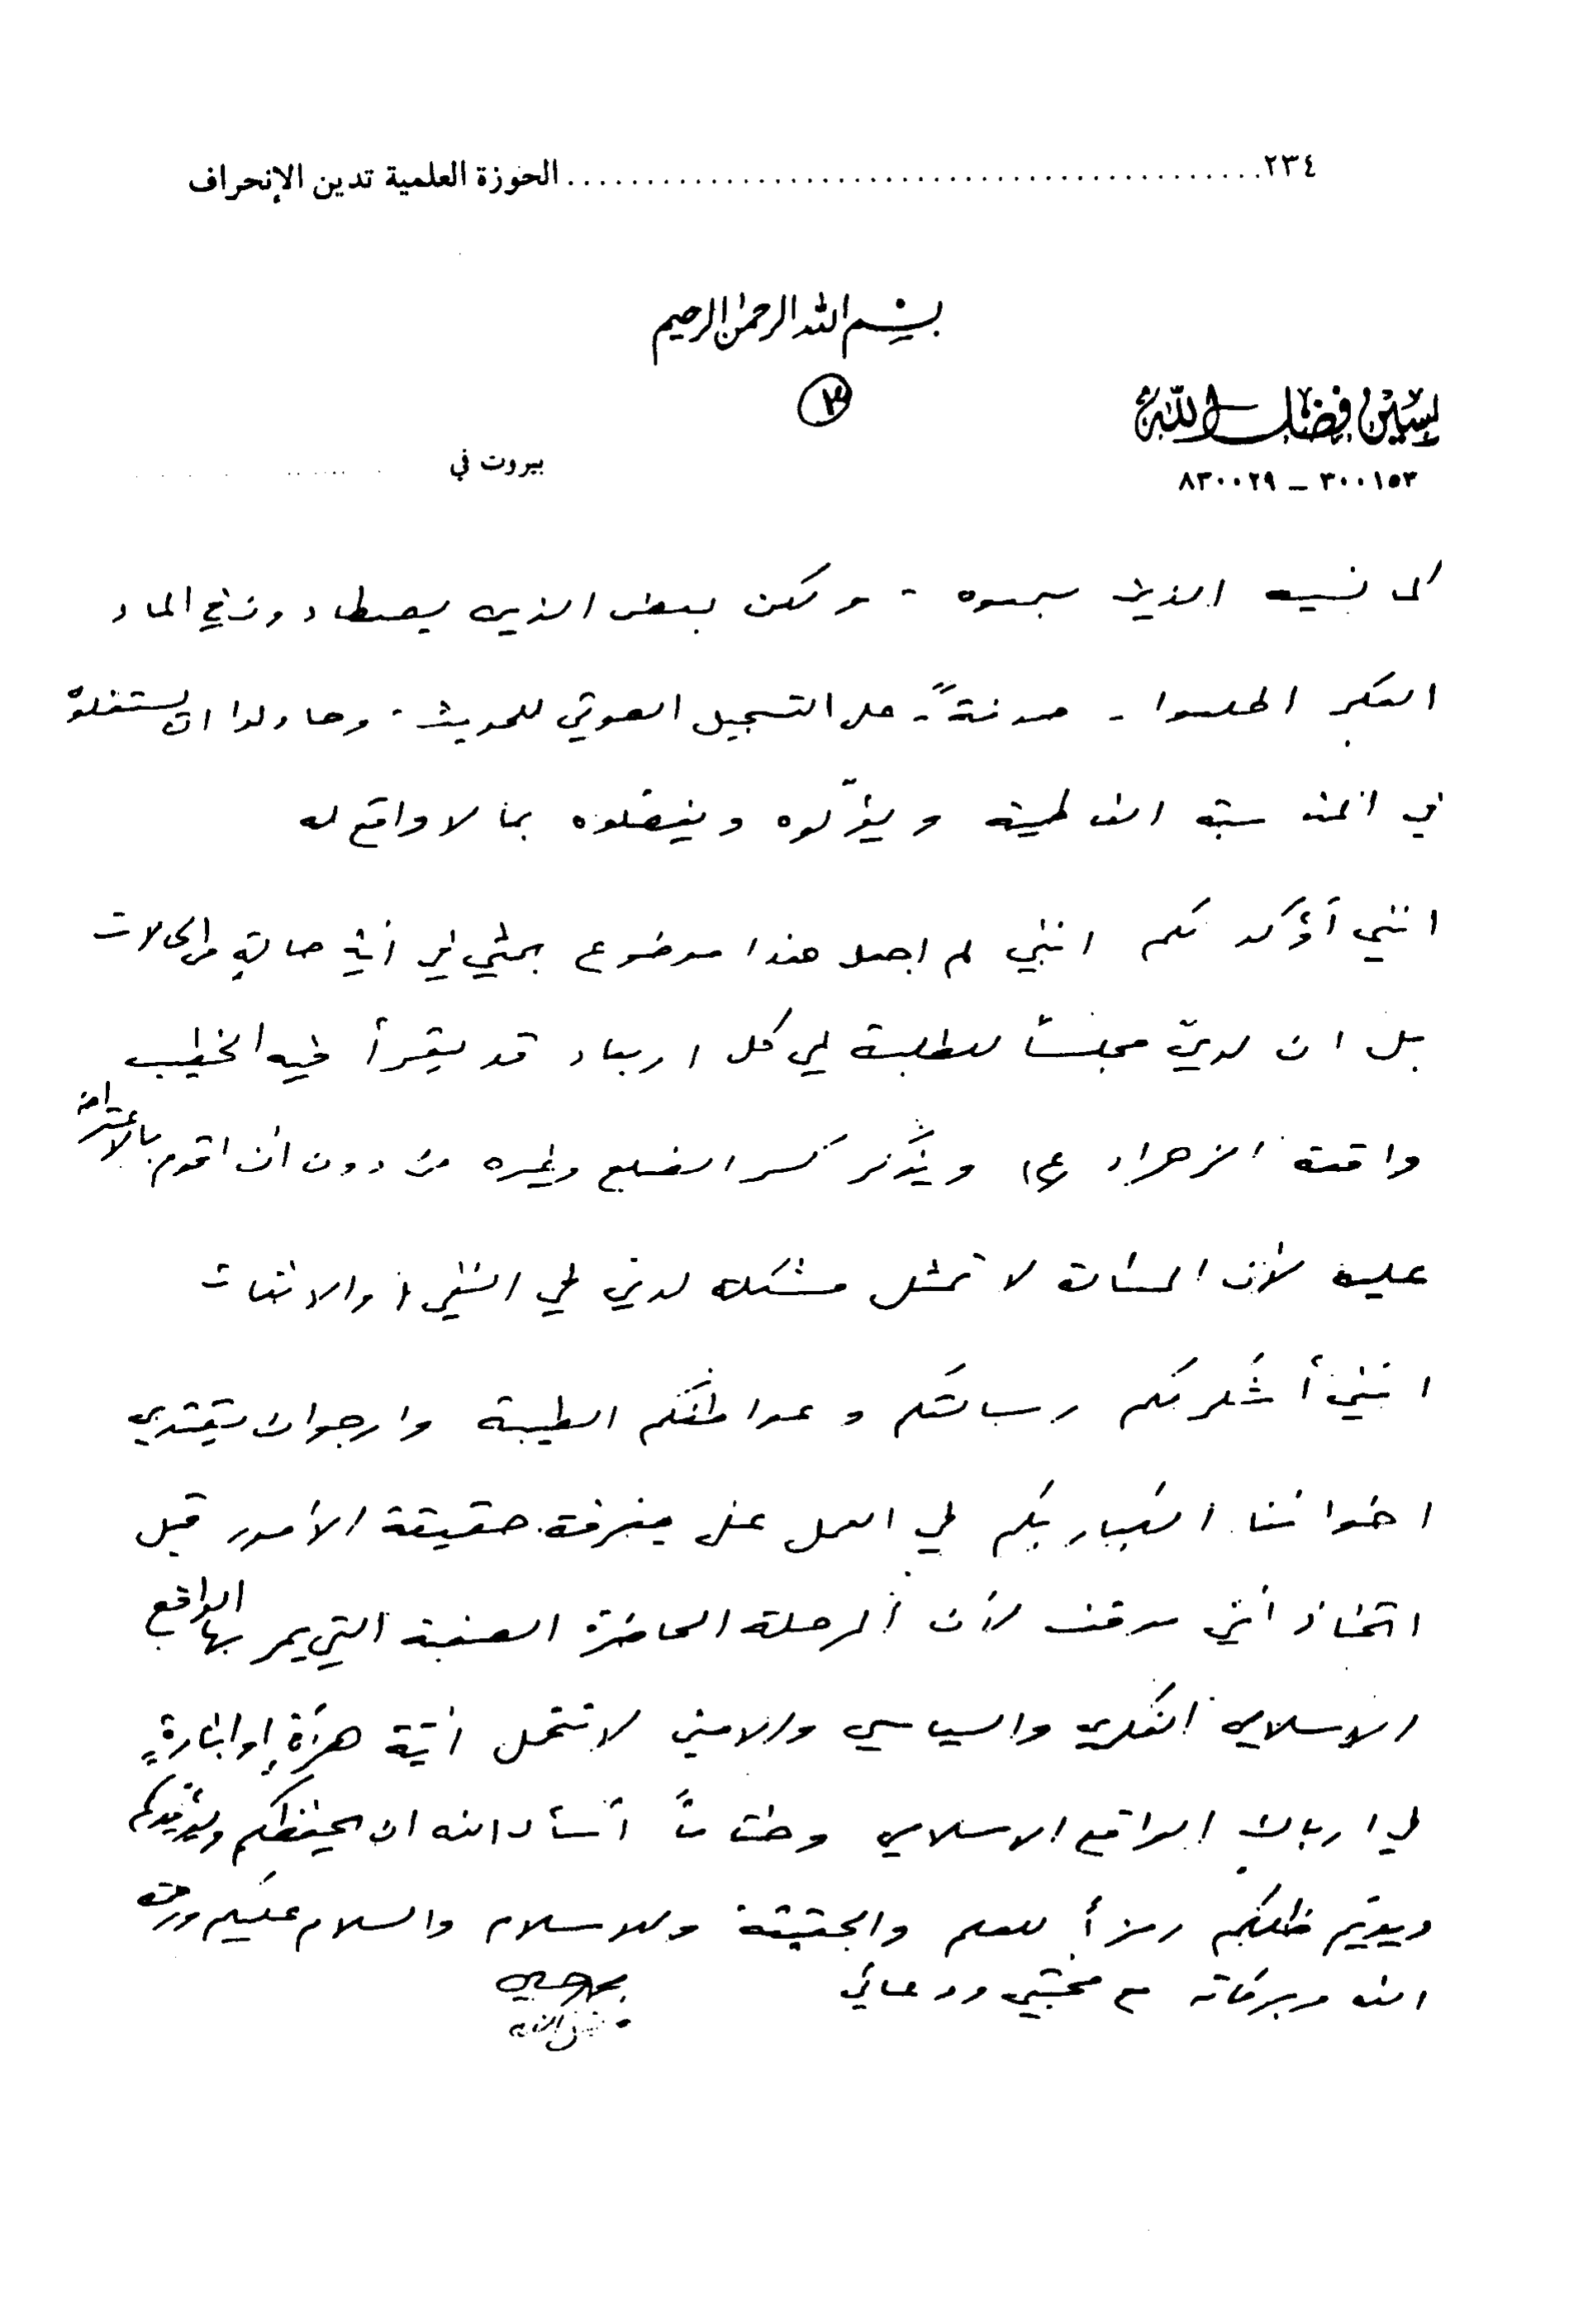 ٢٣٤ ............ الحوزة العلمية تدين الإنحراف
بسم الله الرحمن الرحيم
٣
حسين فضل الله
٨٣٠٠٢٩ – ٣٠٠١٥٣
بيروت في
كما نسيه الذين سمعوه - ولكن بعض الذين يصطادون في الماء
العكر اطلعوا - صدفةً - على التسجيل الصوتي للحديث . وحاولوا ان يستغلوه
في المناسبة الفاطمية ويؤوّلوه بما لا واقع له
انني أؤكد لكم انني لم اجعل هذا موضوع بحثي في أية حالةٍ من الحالات
بل ان لديّ مجلساً للطلبة في كل اربعاء قد يقرأ فيه الخطيب
واقعة الزهراء (ع) ويذكر كسر الضلع وغيره من دون ان اقوم بالاعتراض
عليه لأن المسألة لا تمثل مشكلة لديّ في النفي والاثبات
انني أشكر لكم رسالتكم وعواطفكم الطيبة وارجو ان يقتدي
اخواننا الكبار بكم في العمل على معرفة حقيقة الأمور قبل
اتخاذ أي موقف لأن المرحلة الحاضرة الصعبة التي يمر بها الواقع
الاسلامي الفكري والسياسي والامني لا تتحمل أيّة هزّةٍ او إثارةٍ
في ارباك الواقع الاسلامي وختاماً أسأل الله ان يحفظكم ويؤيدكم
ويديم ظلكم رمزاً للعلم والحقيقة وللاسلام والسلام عليكم ورحمة
الله وبركاته مع محبتي ودعائي
محمد حسين
فضل الله